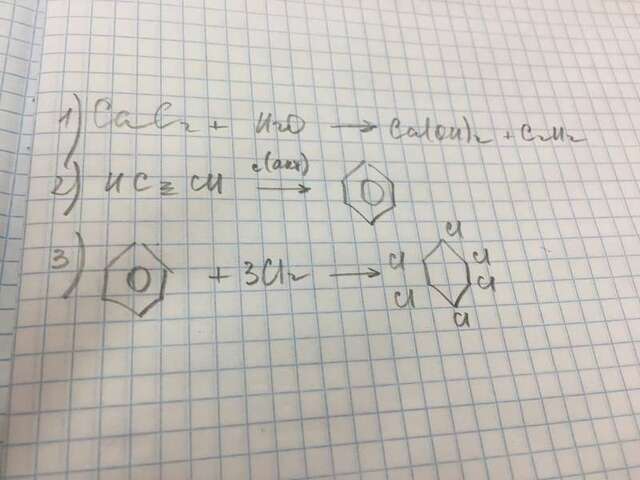 1) CaC₂ + H₂O → Ca(OH)₂ + C₂H₂
2) HC≡CH c(акт) →
3) + 3Cl₂ → Cl Cl Cl Cl Cl Cl